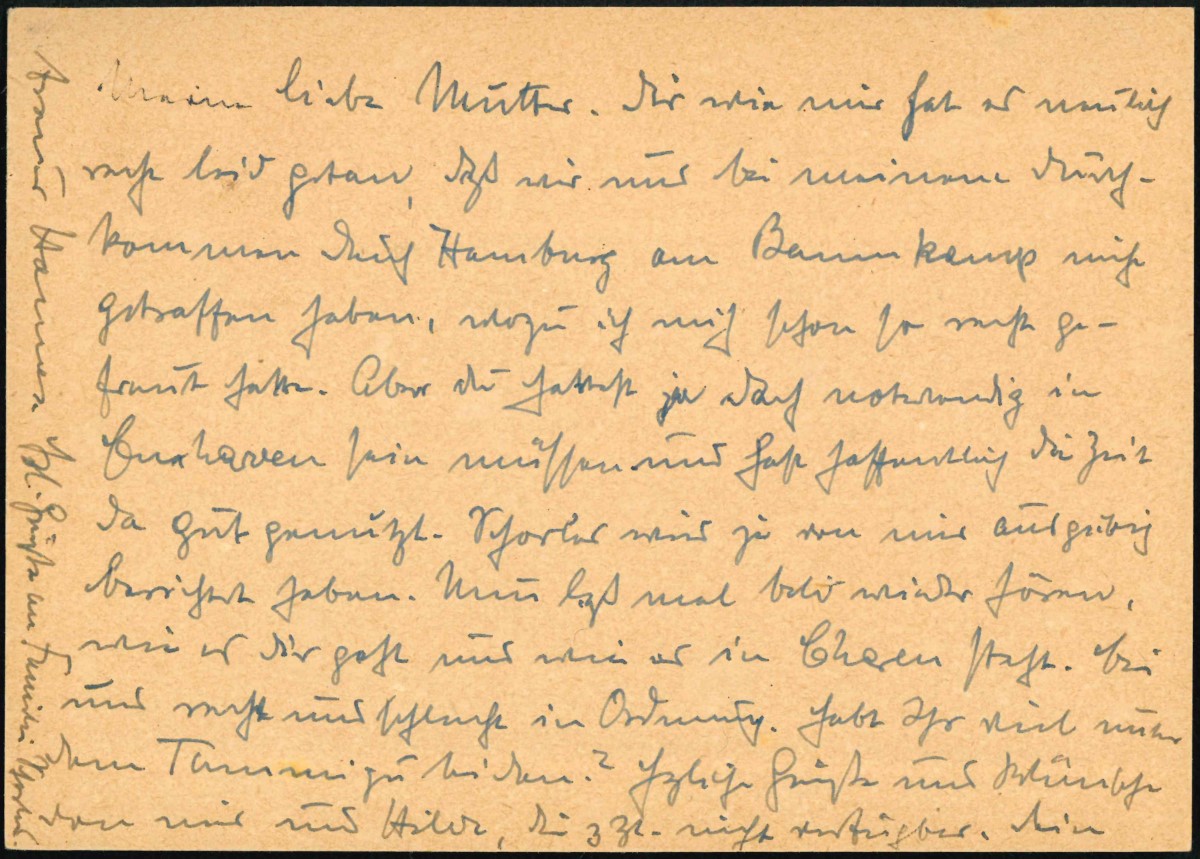 Meine liebe Mutter. Dir wie mir hat es neulich
recht leid getan, daß wir uns bei meinem Durch-
kommen durch Hamburg am Baumkamp nicht
getroffen haben, wozu ich mich schon so recht ge-
freut hatte. Aber du hattest ja doch notwendig in
Cuxhaven sein müssen und hast hoffentlich die Zeit
da gut genutzt. wird ja von mir ausgiebig
berichtet haben. Nun laß mal bald wieder hören,
wie es dir geht und wie es in Chaven steht. Bei
uns recht und schlecht in Ordnung. Habt Ihr viel unter
dem zu leiden? Hzliche Grüße und Wünsche
von mir und Hilde, die z. Zt. nicht verfügbar. Dein
treuer Hannes.
Hzl. Grüße an Familie